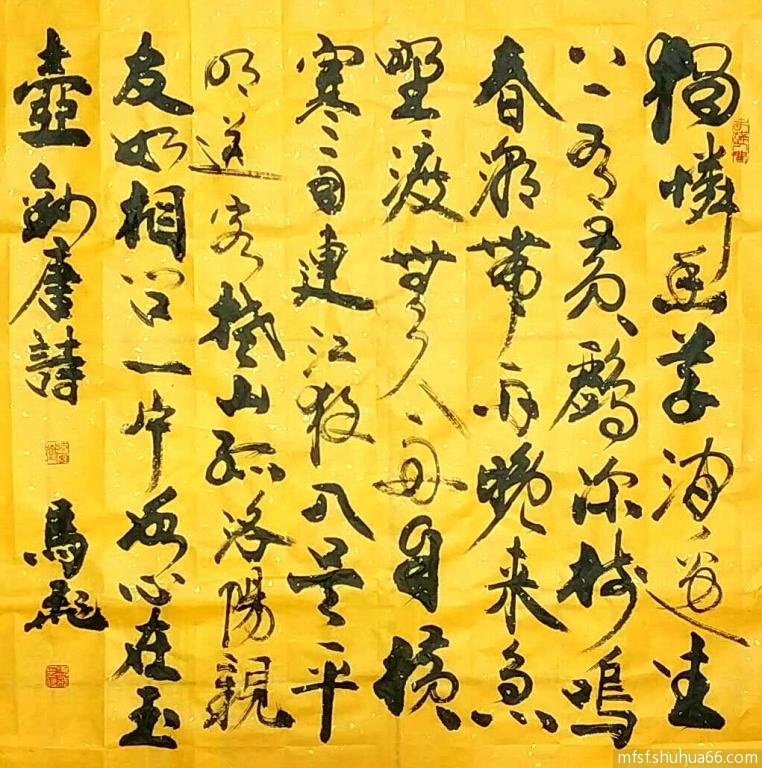 獨憐幽草澗邊生
上有黃鸝深樹鳴
春潮帶雨晚来急
野渡無人舟自橫
寒雨連江夜入吳平
明送客楚山孤洛陽親
友如相问一片冰心在玉
壺錄唐詩
馬
mfsfshuhua66.com